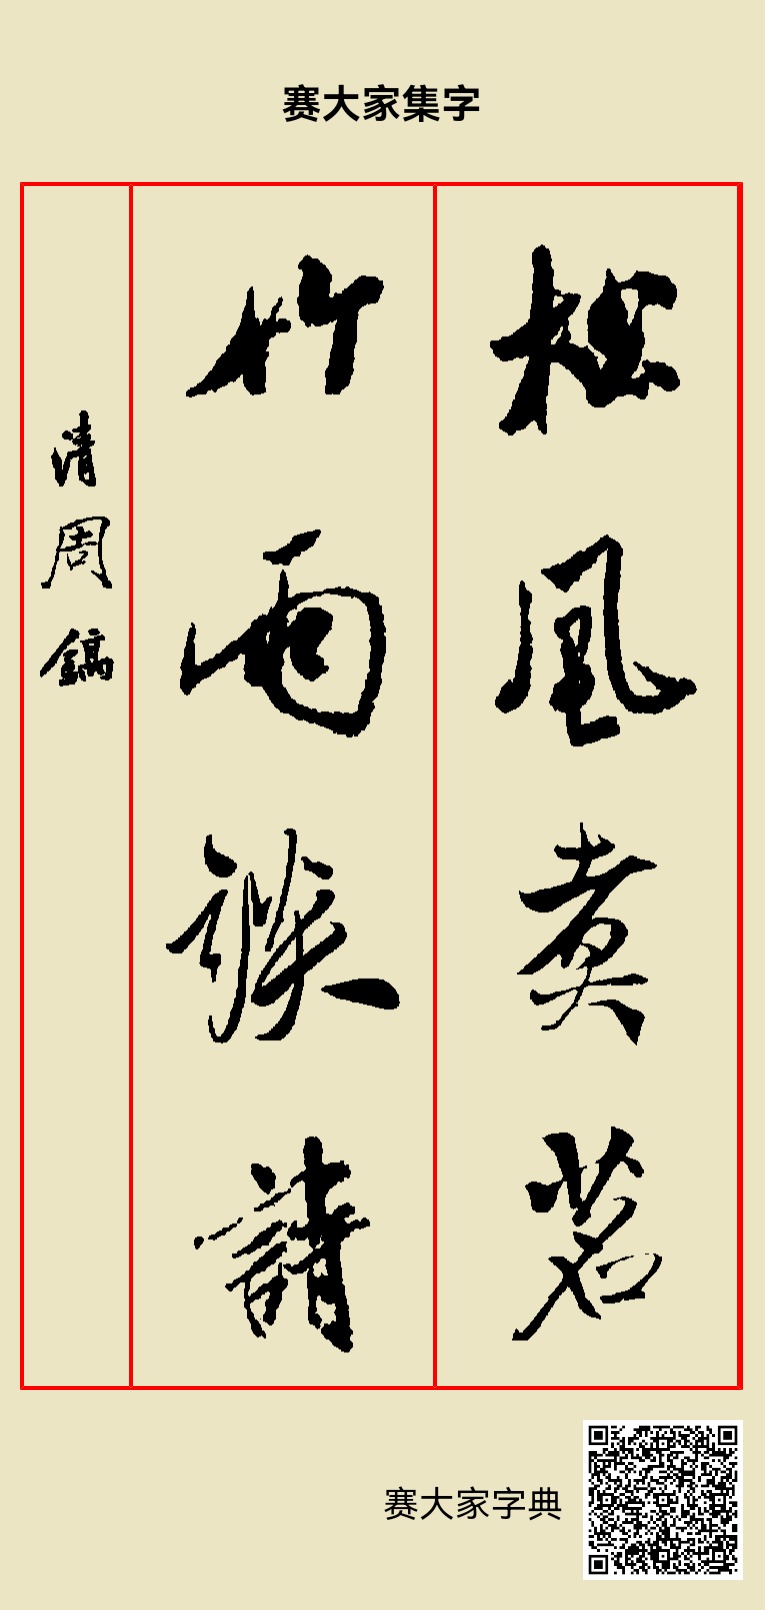 赛大家集字
松風煮茗
竹雨談請
清周鎬
赛大家字典